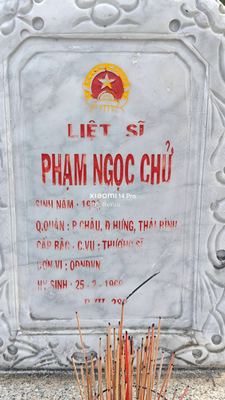 LIỆT SĨ
PHẠM NGỌC CHỬ
XIAOMI 14 Pro
SINH NĂM :
Q.QUÁN : P CHÂU, Đ HƯNG, THÁI BÌNH
CẤP BẬC - C.VỤ : THƯỢNG SĨ
ĐƠN VỊ : QĐNDVN
HY SINH : 25 - 2 - 1969